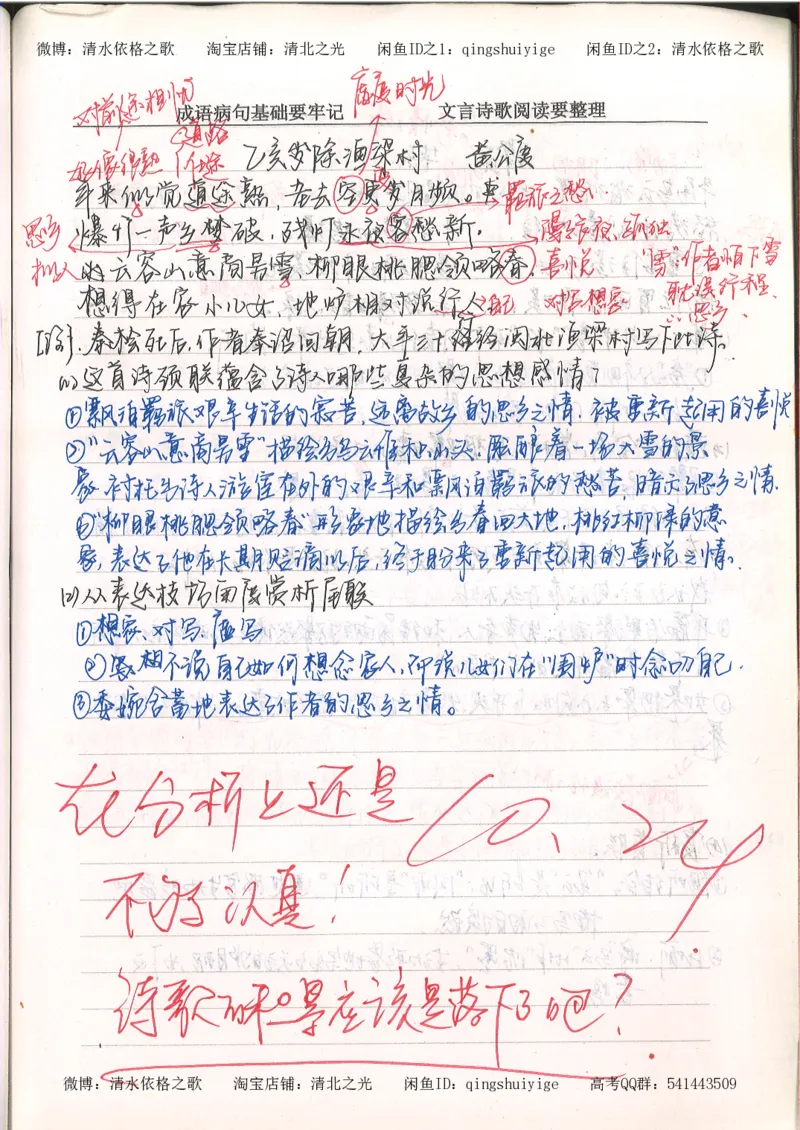 微博：清水依格之歌 淘宝店铺：清北之光 闲鱼ID之1：qingshuiyige 闲鱼ID之2：清水依格之歌
虚度时光
成语病句基础要牢记 文言诗歌阅读要整理
道路
仕途
乙亥岁除渔梁村 黄公度
年来似觉道途熟，老去空更岁月频。爆
羁旅之愁
竹一声乡梦破，残灯永夜客愁新。
漫漫长夜、孤独
思乡
云容山意商量雪，柳眼桃腮领略春
喜悦
"雪"作者怕下雪
耽误行程
∴思乡
想得在家小儿女，地炉相对说行人
自己
对写想家
[注]：秦桧死后，作者奉诏回朝，大年三十途经闽北渔梁村写下此诗。
(1)这首诗颈联蕴含了诗人哪些复杂的思想感情？
①飘泊羁旅艰辛生活的寂苦，远离故乡的思乡之情，被重新起用的喜悦
②"云容山意商量雪"描绘出乌云堆积山头，酝酿着一场大雪的景
象，衬托出诗人游宦在外的艰辛和飘泊羁旅的愁苦，暗示了思乡之情.
③"柳眼桃腮领略春"形象地描绘出春回大地，桃红柳绿的意
象，表达了他在长期贬谪以后，终于盼来了重新起用的喜悦之情。
(2)从表达技巧角度赏析尾联
①想象、对写、虚写
②不说自己如何想念家人，而说儿女们在"围炉"时念叨自己.
③委婉含蓄地表达了作者的思乡之情。
在分析上还是
不够认真！
10、24
诗歌积累应该是落下了吧？
微博：清水依格之歌 淘宝店铺：清北之光 闲鱼ID：qingshuiyige 高考QQ群：541443509